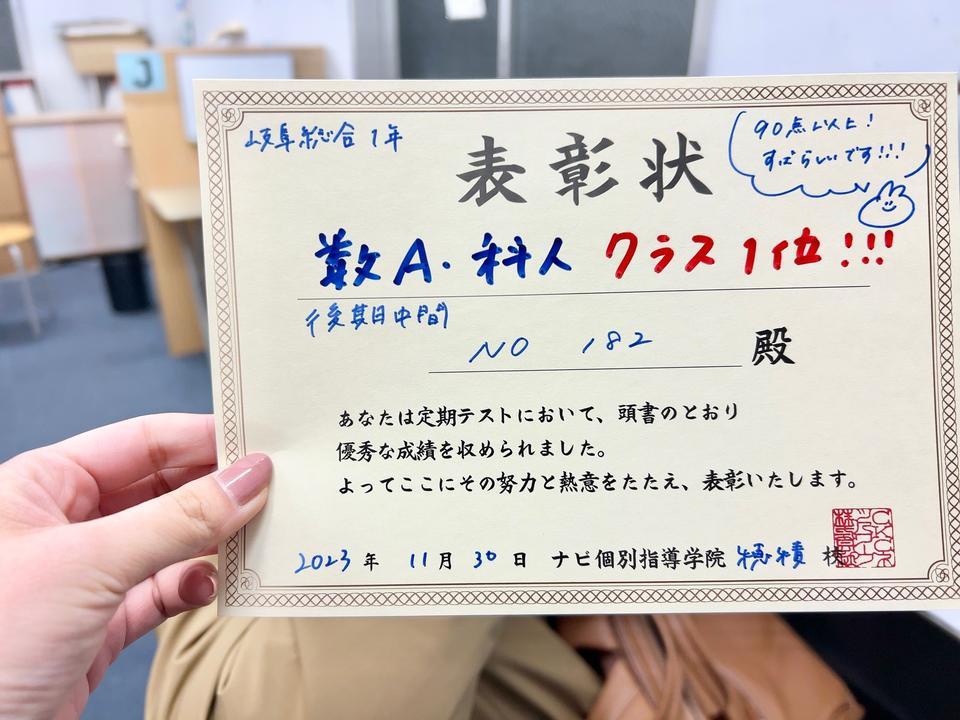 J
岐阜総合 1年
表彰状
90点以上!
すばらしいです!!!
数A・科人 クラス1位!!!
後期中間
NO 182 殿
あなたは定期テストにおいて、頭書のとおり
優秀な成績を収められました。
よってここにその努力と熱意をたたえ、表彰いたします。
2023年 11月 30日 ナビ個別指導学院 穂積 校